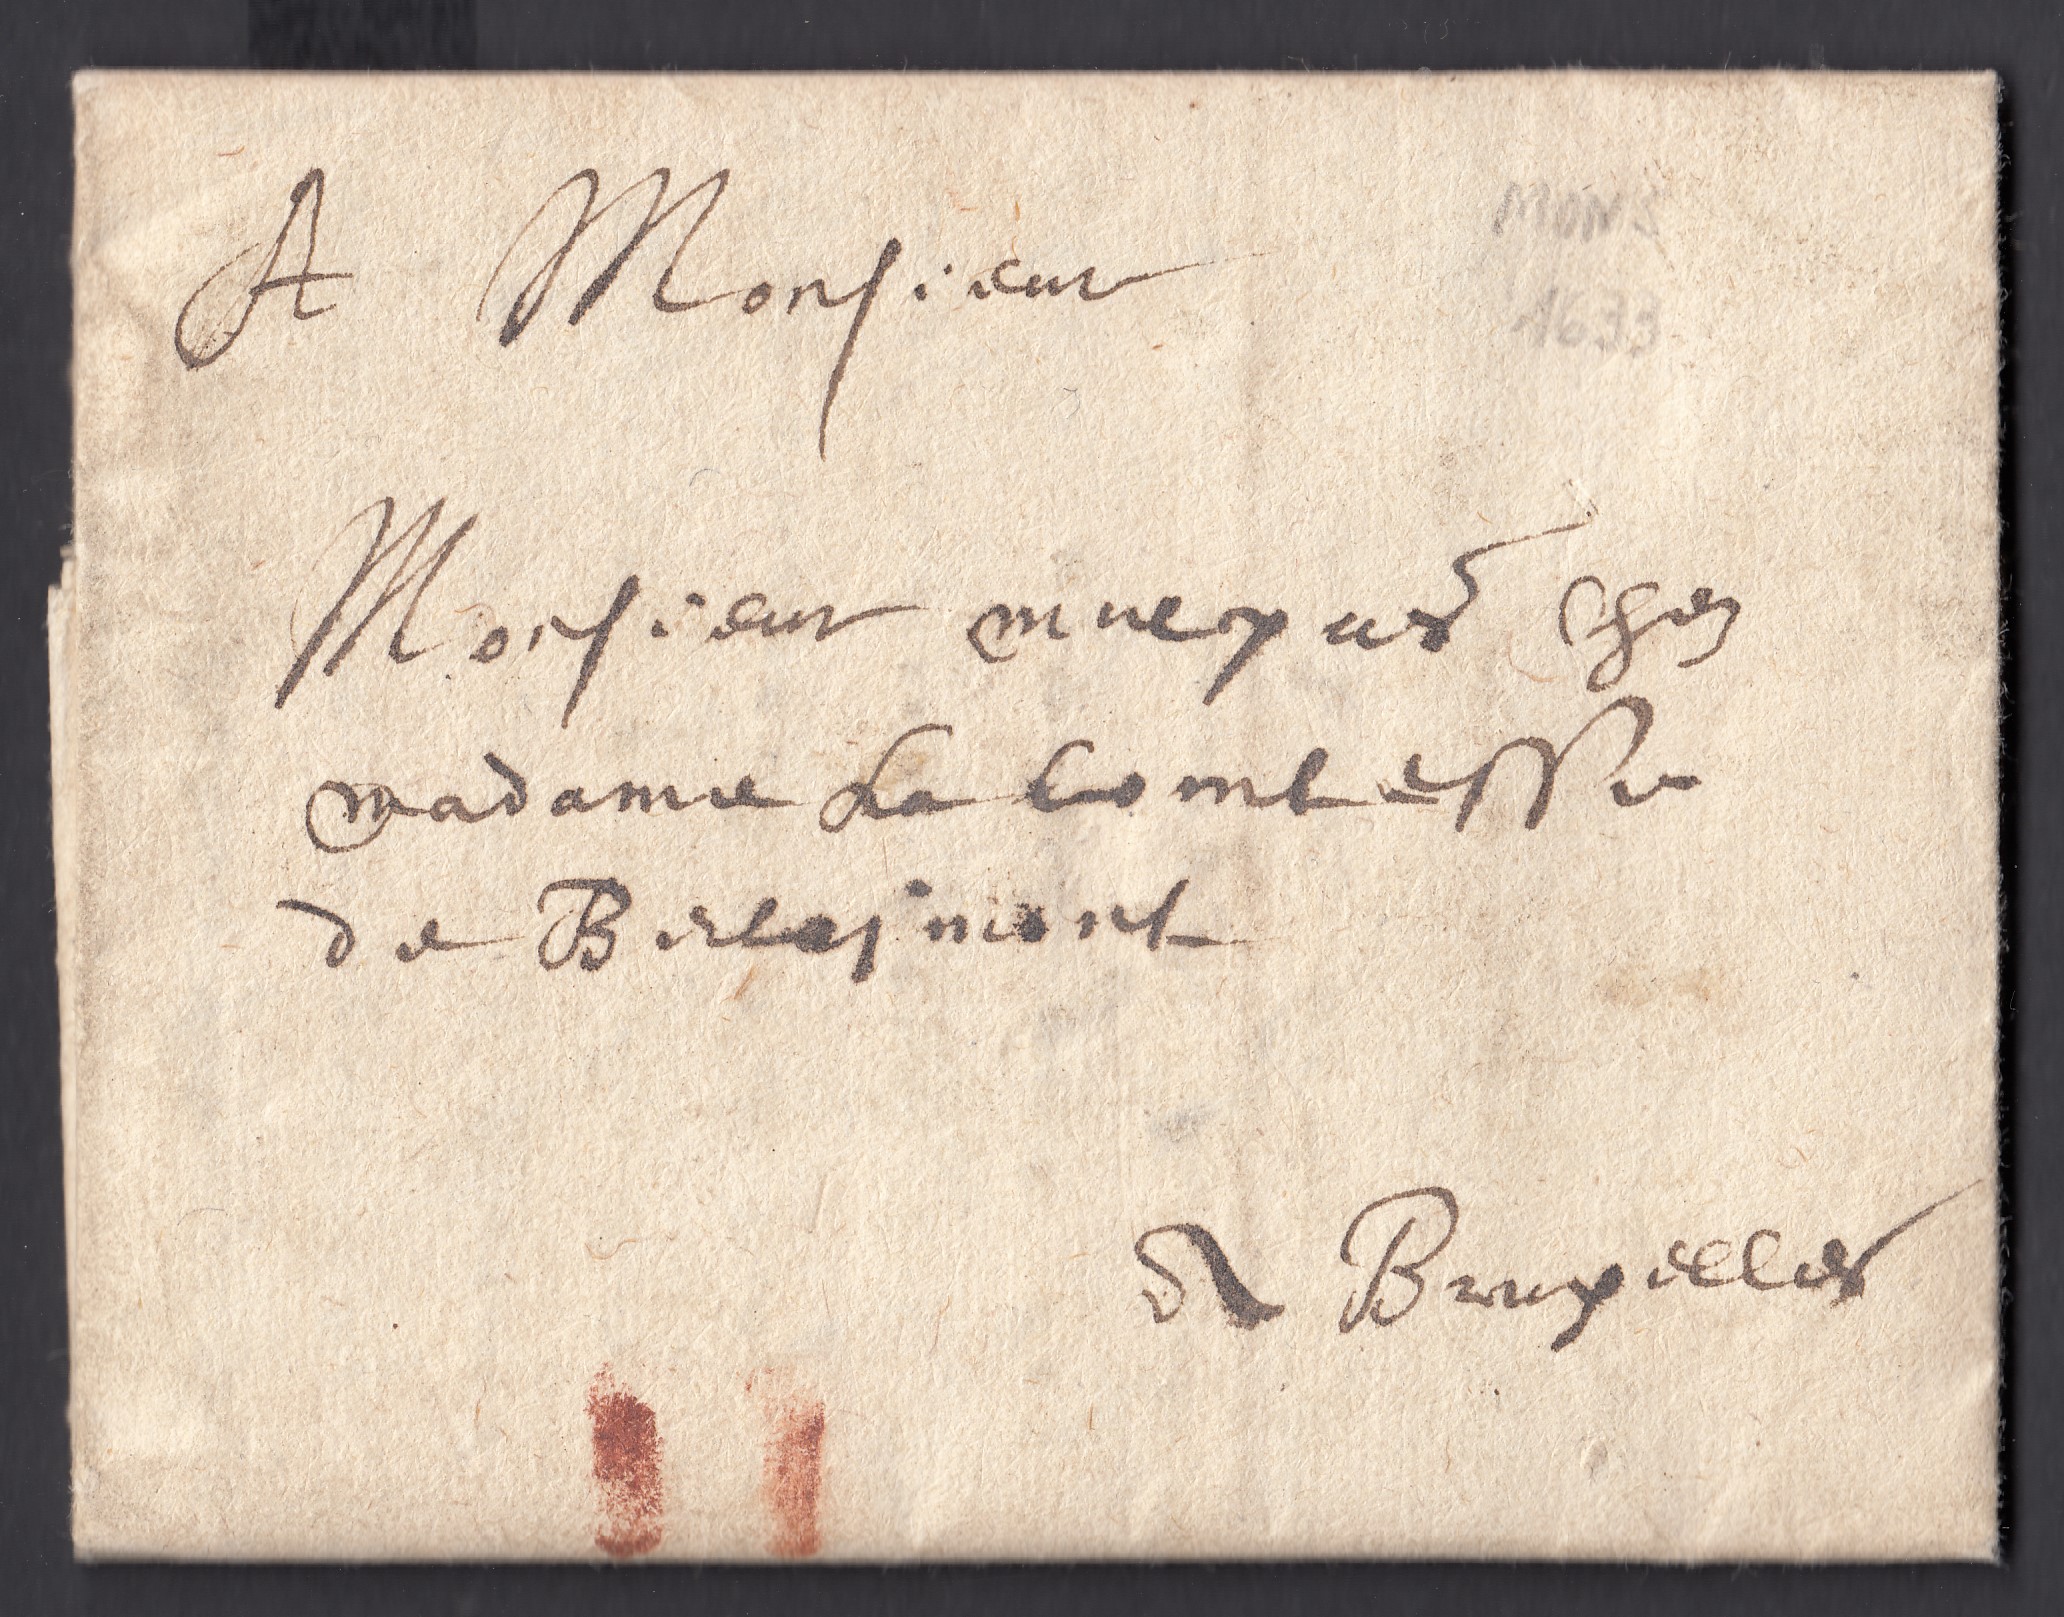 A Monsieur
MONS
1633
Monsieur chez
madame La Comtesse
de Berlaimont
A Bruxelles